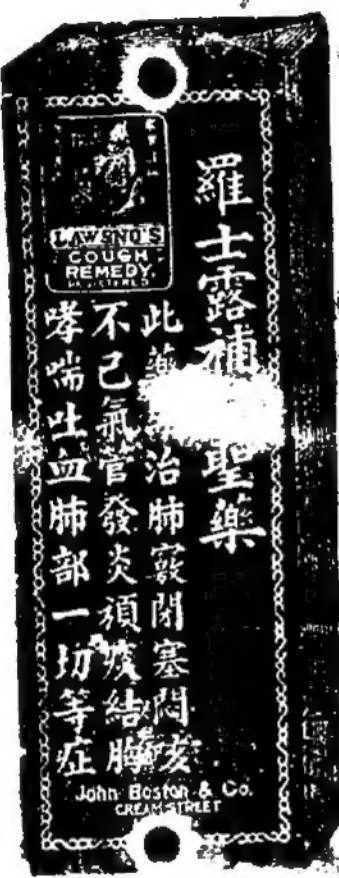 羅士露補聖藥
LAWSNO'S
COUGH
REMEDY.
REGISTERED
此藥治肺竅閉塞悶咳
不已氣管發炎頑痰結胸
哮喘吐血肺部一切等症
John Boston & Co.
CREAM STREET